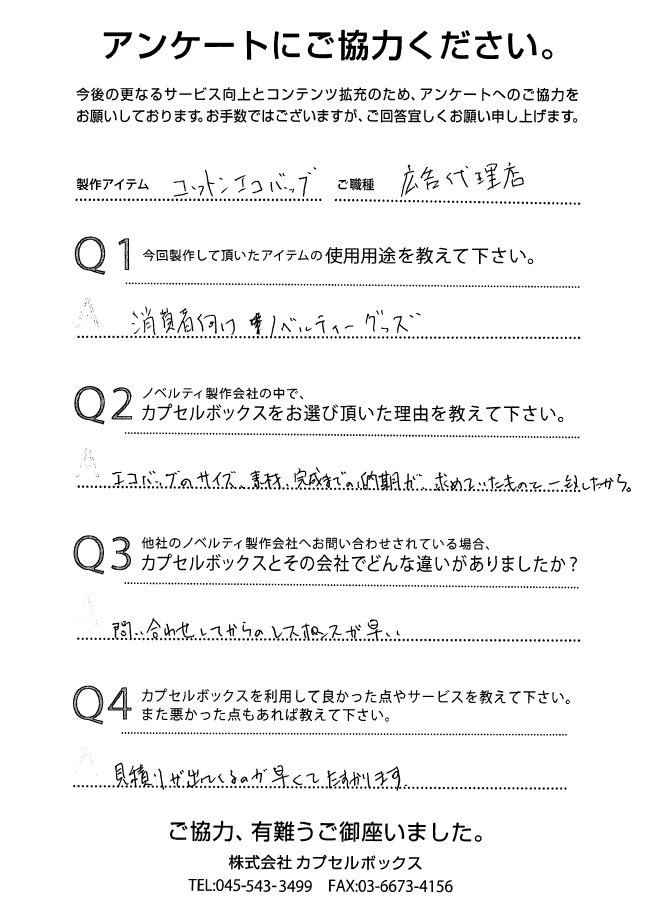 アンケートにご協力ください。
今後の更なるサービス向上とコンテンツ拡充のため、アンケートへのご協力を
お願いしております。お手数ではございますが、ご回答宜しくお願い申し上げます。
製作アイテム コットンエコバッグ ご職種 広告代理店
Q1 今回製作して頂いたアイテムの使用用途を教えて下さい。
A 消費者向け ノベルティーグッズ
Q2 ノベルティ製作会社の中で、
カプセルボックスをお選び頂いた理由を教えて下さい。
A エコバッグのサイズ、素材、完成までの納期が、求めていたものと一致したから。
Q3 他社のノベルティ製作会社へお問い合わせされている場合、
カプセルボックスとその会社でどんな違いがありましたか?
A 問い合わせしてからのレスポンスが早い
Q4 カプセルボックスを利用して良かった点やサービスを教えて下さい。
また悪かった点もあれば教えて下さい。
A 見積りが出てくるのが早くてたすかります
ご協力、有難うご御座いました。
株式会社 カプセルボックス
TEL:045-543-3499 FAX:03-6673-4156